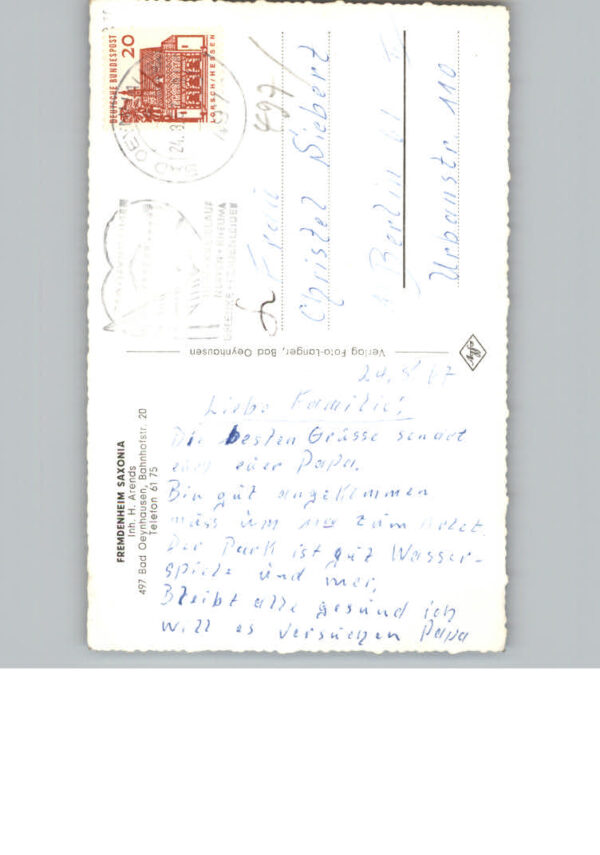 DEUTSCHE BUNDESPOST
20
LORSCH/HESSEN
24.8
497/
Frau
Christel Siebert
1 Berlin 61
Urbanstr 110
Verlag Foto-Langer, Bad Oeynhausen
FREMDENHEIM SAXONIA
Inh. H. Arends
497 Bad Oeynhausen, Bahnhofstr. 20
Telefon 61 75
Liebe Familie!
Die besten Grüsse sendet
euch euer Papa.
Bin gut angekommen
muss um zum Arzt.
Der Park ist gut Wasser-
spiele und mer,
Bleibt alle gesund ich
will es versuchen Papa